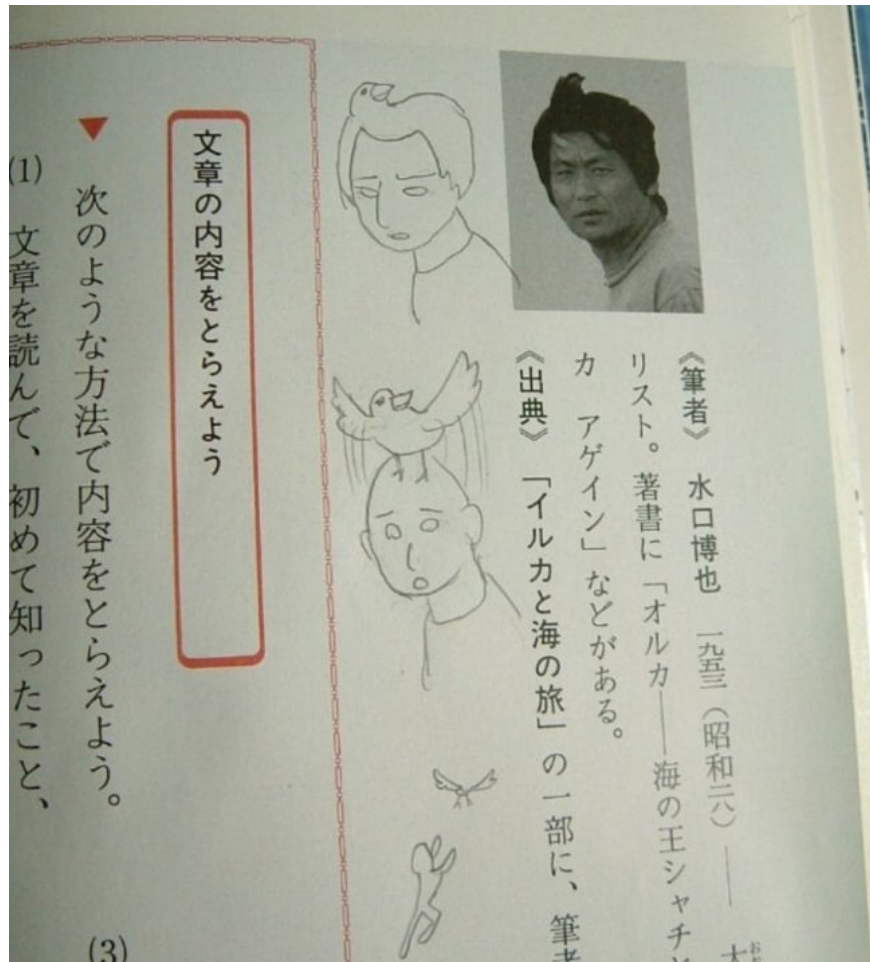 《筆者》 水口博也 一九五三（昭和二八）―― 大
おお
リスト。著書に「オルカ――海の王シャチと
カ アゲイン」などがある。
《出典》 「イルカと海の旅」の一部に、筆者
文章の内容をとらえよう
▼ 次のような方法で内容をとらえよう。
(1) 文章を読んで、初めて知ったこと、
(3)